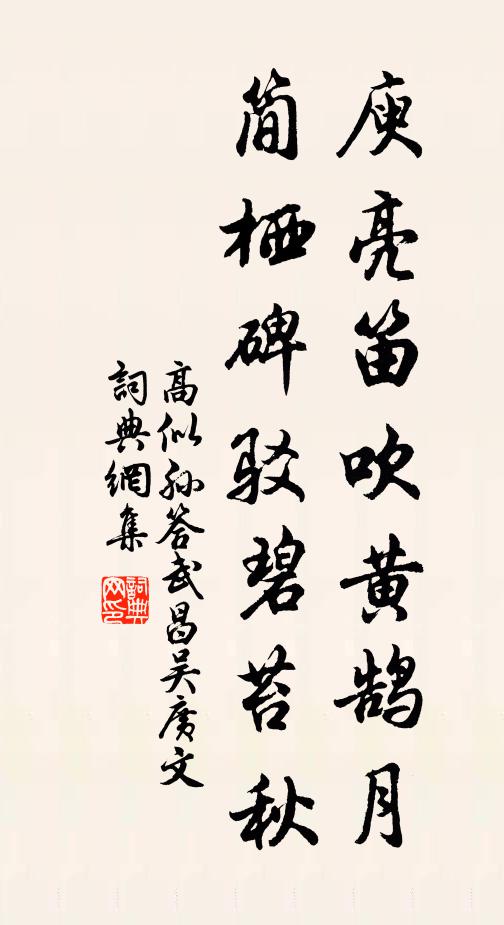 庾亮笛吹黄鹄月
简栖碑驳碧苔秋
高似孙答武昌吴廣文
詞典網集
詞典
网印